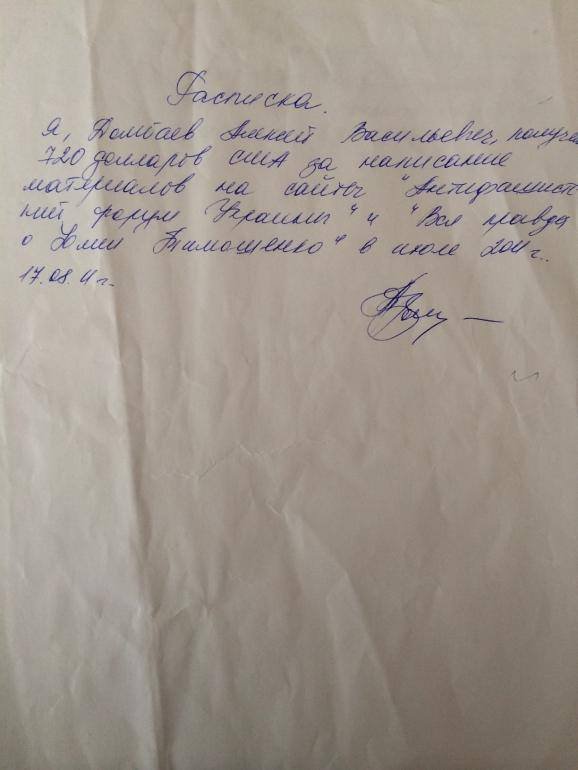 Расписка.
Я, Домбаев Алексей Васильевич, получил
720 долларов США за написание
материалов на сайты "Антифашистс-
кий форум Украины" и "Вся правда
о Юлии Тимошенко" в июле 2011 г.
17.08.11 г.